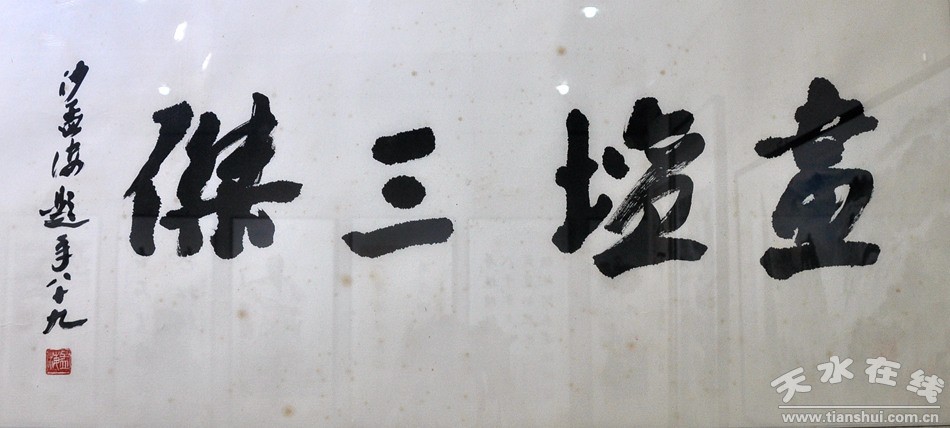 畫壇三傑
沙孟海題年八十九
天水在线
www.tianshui.com.cn